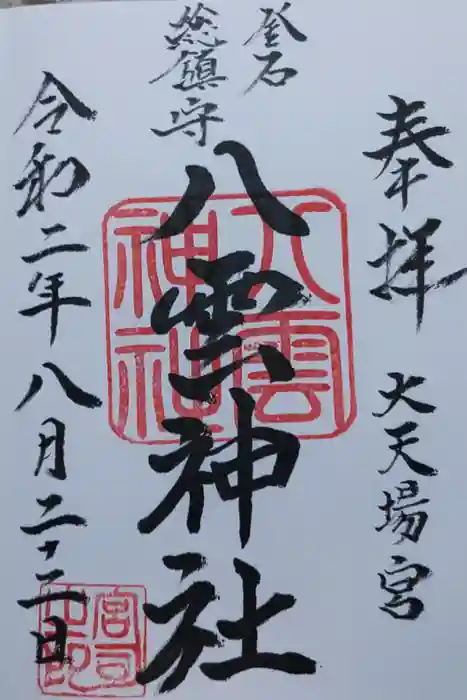 奉拝
大天場宮
釜石
総鎮守
八雲神社
八雲神社
令和二年八月二十二日
宮司之印